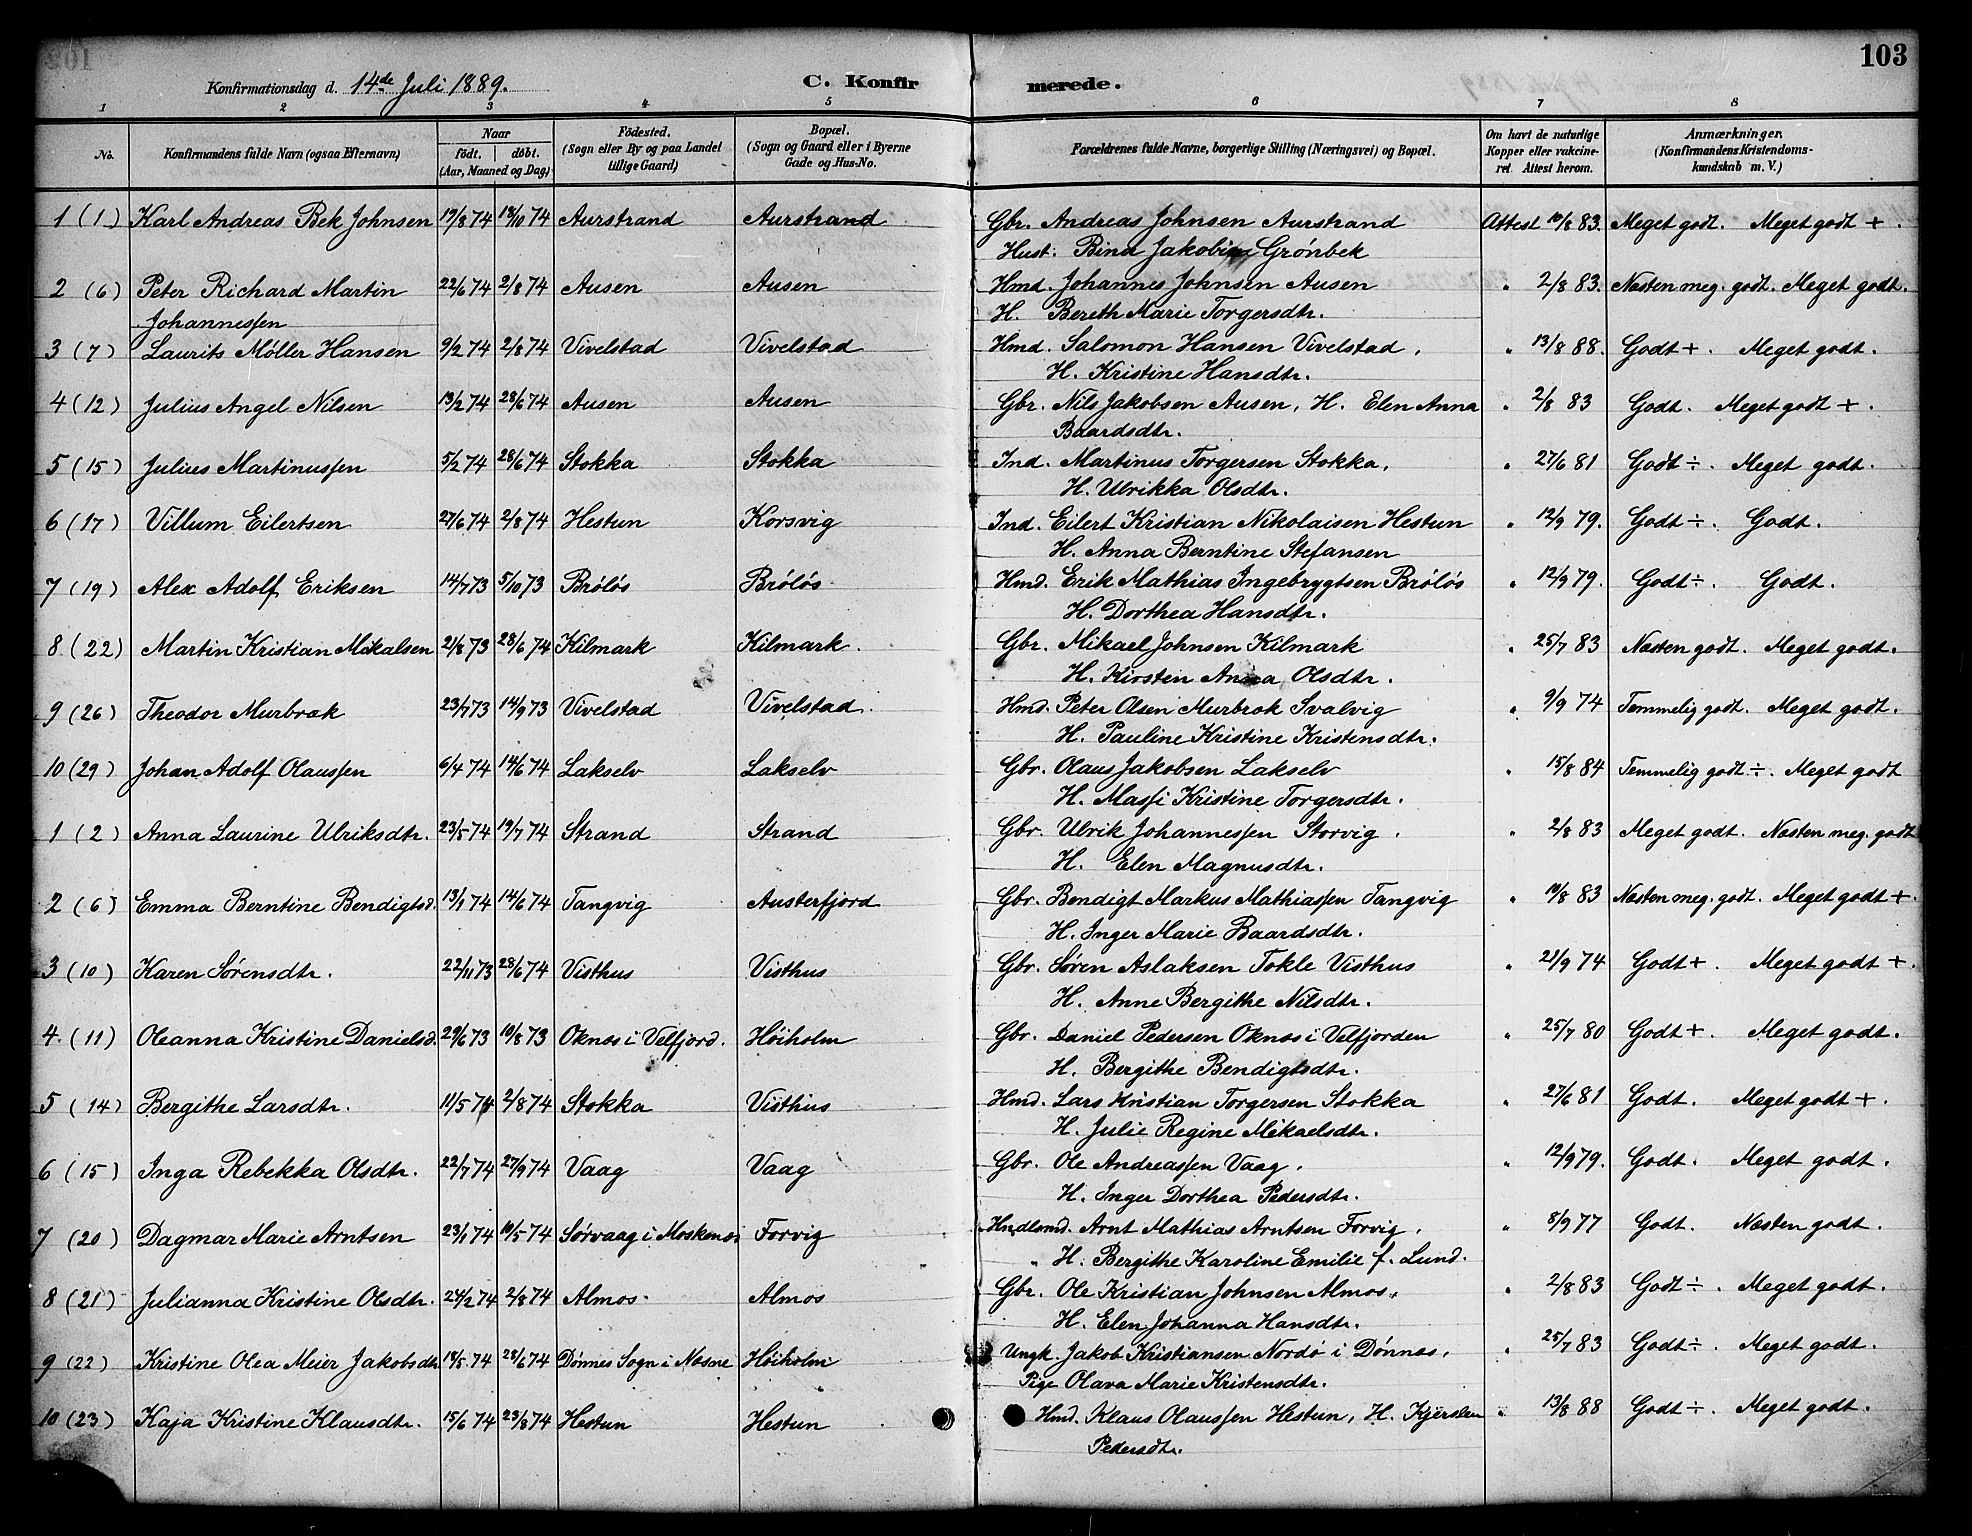 103
Konfirmationsdag d. 14de Juli 1889. C. Konfirmerede.
1 2 3 4 5 6 7 8
No. Konfirmandens fulde Navn (ogsaa Efternavn) Naar født. døbt. (Aar, Maaned og Dag) Födested. (Sogn eller By og paa Landet tillige Gaard) Bopæl. (Sogn og Gaard eller i Byerne Gade og Hus-No. Forældrenes fulde Navne, borgerlige Stilling (Næringsvei) og Bopæl. Om havt de naturlige Kopper eller vakcineret. Attest herom. Anmærkninger, (Konfirmandens Kristendomskundskab m. V.)
1 (1) Karl Andreas Bek Johnsen 19/8 74 18/10 74 Aurstrand Aurstrand Gbr. Andreas Johnsen Aurstrand Attest 10/8 83. Meget godt. Meget godt +.
Hust: Bina Jakobine Grönbek
2 (6) Peter Richard Martin 22/6 74 2/8 74 Ausen Ausen Hmd. Johannes Johnsen Ausen " 2/8 83. Næsten meg. godt. Meget godt.
Johannessen H. Bereth Marie Torgersdtr.
3 (7) Laurits Møller Hansen 9/2 74 2/8 74 Vivelstad Vivelstad Hmd. Salomon Hansen Vivelstad, " 13/8 88. Godt +. Meget godt.
H. Kristine Hansdtr.
4 (12) Julius Angel Nilsen 13/2 74 28/6 74 Ausen Ausen Gbr. Nils Jakobsen Ausen, H. Elen Anna " 2/8 83 Godt. Meget godt +.
Baardsdtr.
5 (15) Julius Martinussen 5/2 74 28/6 74 Stokka Stokka Ind. Martinus Torgersen Stokka, " 27/6 81 Godt ÷. Meget godt.
H. Ulrikka Olsdtr.
6 (17) Villum Eilertsen 27/6 74 2/8 74 Hestun Korsvig Ind. Eilert Kristian Nikolaisen Hestun " 12/9 79. Godt ÷. Godt.
H. Anna Berntine Stefansen
7 (19) Alex Adolf Eriksen 14/7 73 5/10 73 Bröløs Bröløs Hmd. Erik Mathias Ingebrygtsen Bröløs " 12/9 79. Godt ÷. Godt.
H. Dorthea Hansdtr.
8 (22) Martin Kristian Mikalsen 2/8 73 28/6 74 Kilmark Kilmark. Gbr. Mikael Johnsen Kilmark " 25/7 83 Næsten godt. Meget godt.
H. Kirsten Anna Olsdtr.
9 (26) Theodor Murbræk 23/7 73 14/9 73 Vivelstad Vivelstad. Hmd. Peter Olsen Murbræk Svalvig " 9/9 74 Temmelig godt. Meget godt.
H. Pauline Kristine Kristensdtr.
10 (29) Johan Adolf Olaussen 6/4 74 14/6 74 Lakselv Lakselv Gbr. Olaus Jakobsen Lakselv " 15/8 84 Temmelig godt ÷. Meget godt
H. Massi Kristine Torgersdtr.
1 (2) Anna Laurine Ulriksdtr. 23/5 74 19/7 74 Strand Strand Gbr. Ulrik Johannessen Storvig. " 2/8 83 Meget godt. Næsten meg. godt
H. Elen Magnusdtr.
2 (6) Emma Berntine Bendigtsd. 13/1 74 14/6 74 Tangvig Austerfjord Gbr. Bendigt Markus Mathiassen Tangvig " 10/8 83 Næsten meg. godt. Meget godt +.
H. Inger Marie Baardsdtr.
3 (10) Karen Sørensdtr. 22/11 73 28/6 74 Visthus Visthus Gbr. Søren Aslaksen Tokle Visthus " 21/9 74 Godt +. Meget godt +.
H. Anne Bergithe Nilsdtr.
4. (11) Oleanna Kristine Danielsd. 29/6 73 10/8 73 Oknæs i Velfjord. Høiholm Gbr. Daniel Pedersen Oknæs i Velfjorden " 25/7 80 Godt +. Meget godt.
H. Bergithe Bendigtsdtr.
5 (14) Bergithe Larsdtr. 11/5 74 2/8 74 Stokka Visthus Hmd. Lars Kristian Torgersen Stokka " 27/6 81 Godt. Meget godt +.
H. Julie Regine Mikaelsdtr.
6 (15) Inga Rebekka Olsdtr. 22/7 74 27/9 74 Vaag Vaag Gbr. Ole Andreassen Vaag. " 12/9 79. Godt. Meget godt.
H. Inger Dorthea Pedersdtr.
7 (20) Dagmar Marie Arntsen 23/1 74 10/5 74 Sørvaag i Moskenæs Forvig Hndlsmd. Arnt Mathias Arntsen Forvig, " 8/9 77 Godt. Næsten godt.
" H. Bergithe Karoline Emilie f. Lund.
8 (21) Julianna Kristine Olsdtr. 24/2 74 2/8 74 Almos Almos Gbr. Ole Kristian Johnsen Almos, " 2/8 83 Godt ÷. Meget godt.
H. Elen Johanna Hansdtr.
9 (22) Kristine Olea Meier Jakobsdtr 18/5 74 28/6 74 Dønnes Sogn i Næsne Høiholm Ungk. Jakob Kristiansen Nordø i Dønnæs, " 25/7 83 Godt ÷. Meget godt.
Pige Olava Marie Kristensdtr.
10 (23) Kaja Kristine Klausdtr. 15/6 74 23/8 74 Hestun Hestun Hmd. Klaus Olaussen Hestun, H. Kjersten " 13/8 88 Godt ÷. Meget godt.
Pedersdtr.